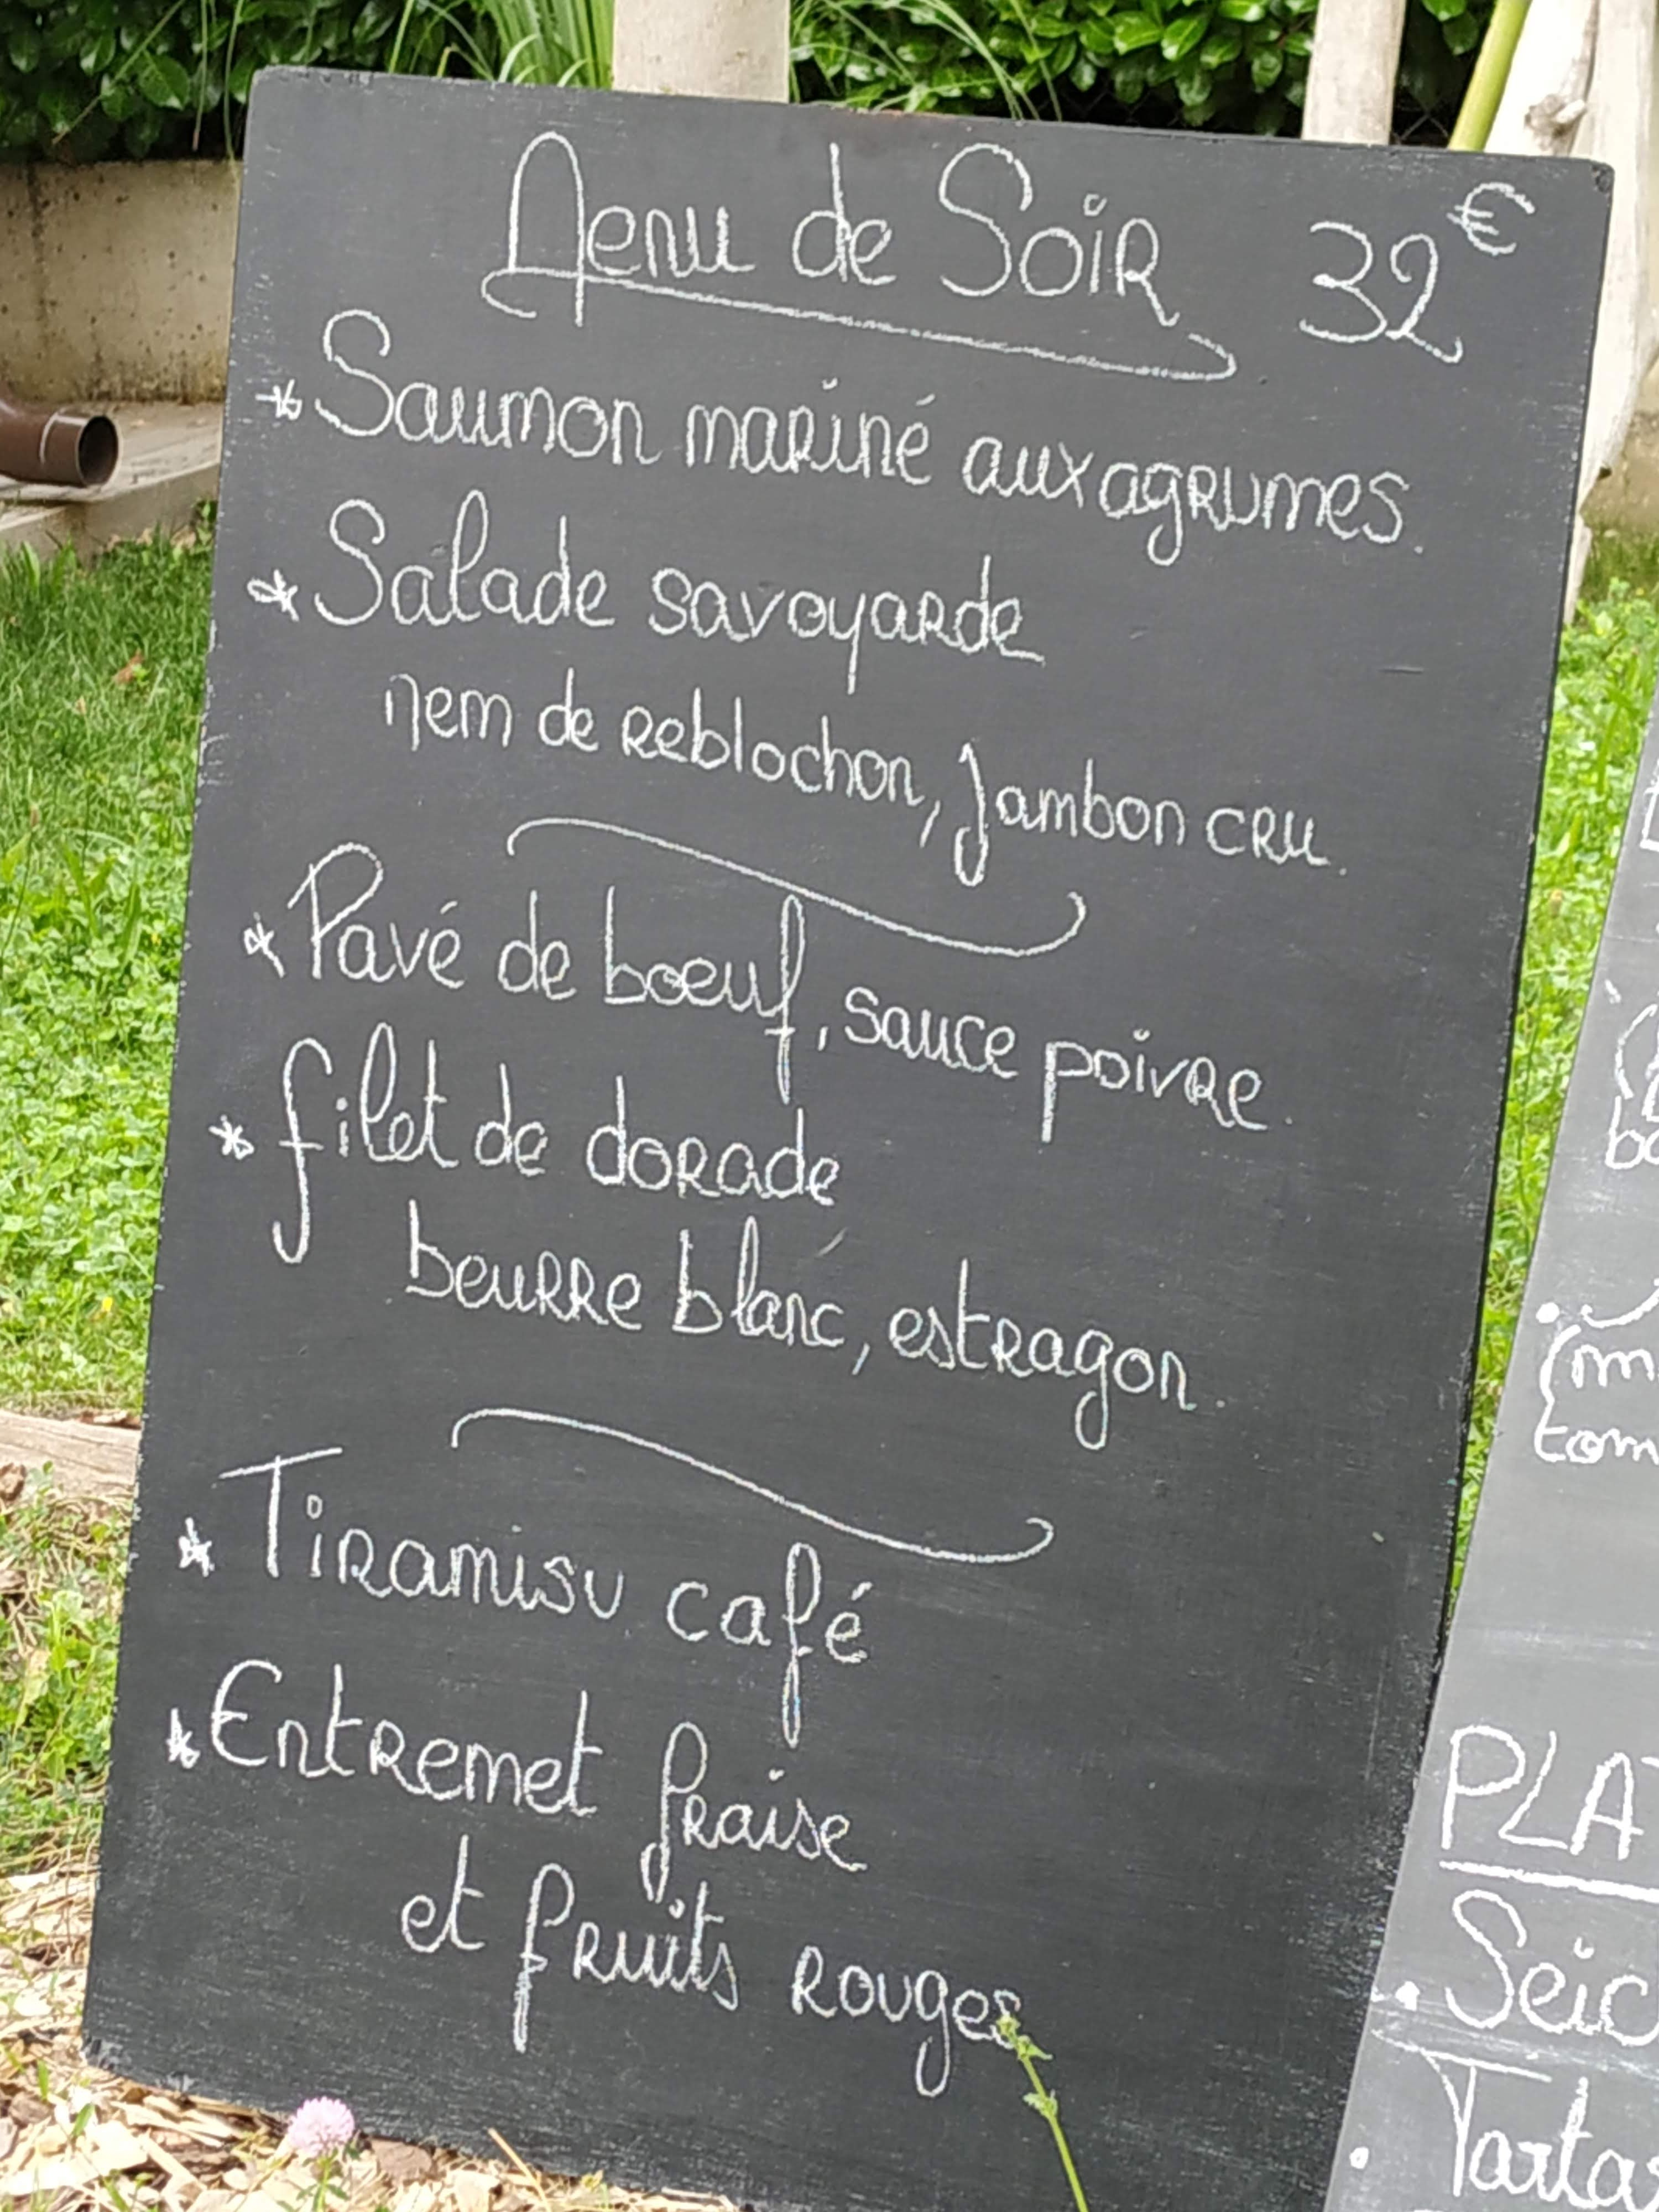 Menu de Soir 32€
* Saumon mariné aux agrumes.
* Salade savoyarde
nem de reblochon, jambon cru.
* Pavé de boeuf, sauce poivre.
* filet de dorade
beurre blanc, estragon.
* Tiramisu café
* Entremet fraise
et fruits rouges
PLAT
. Seic
. Tartar
(m
tom